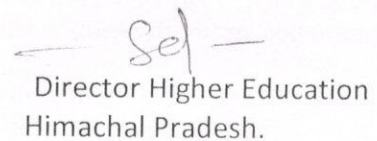 — Sd —
Director Higher Education
Himachal Pradesh.